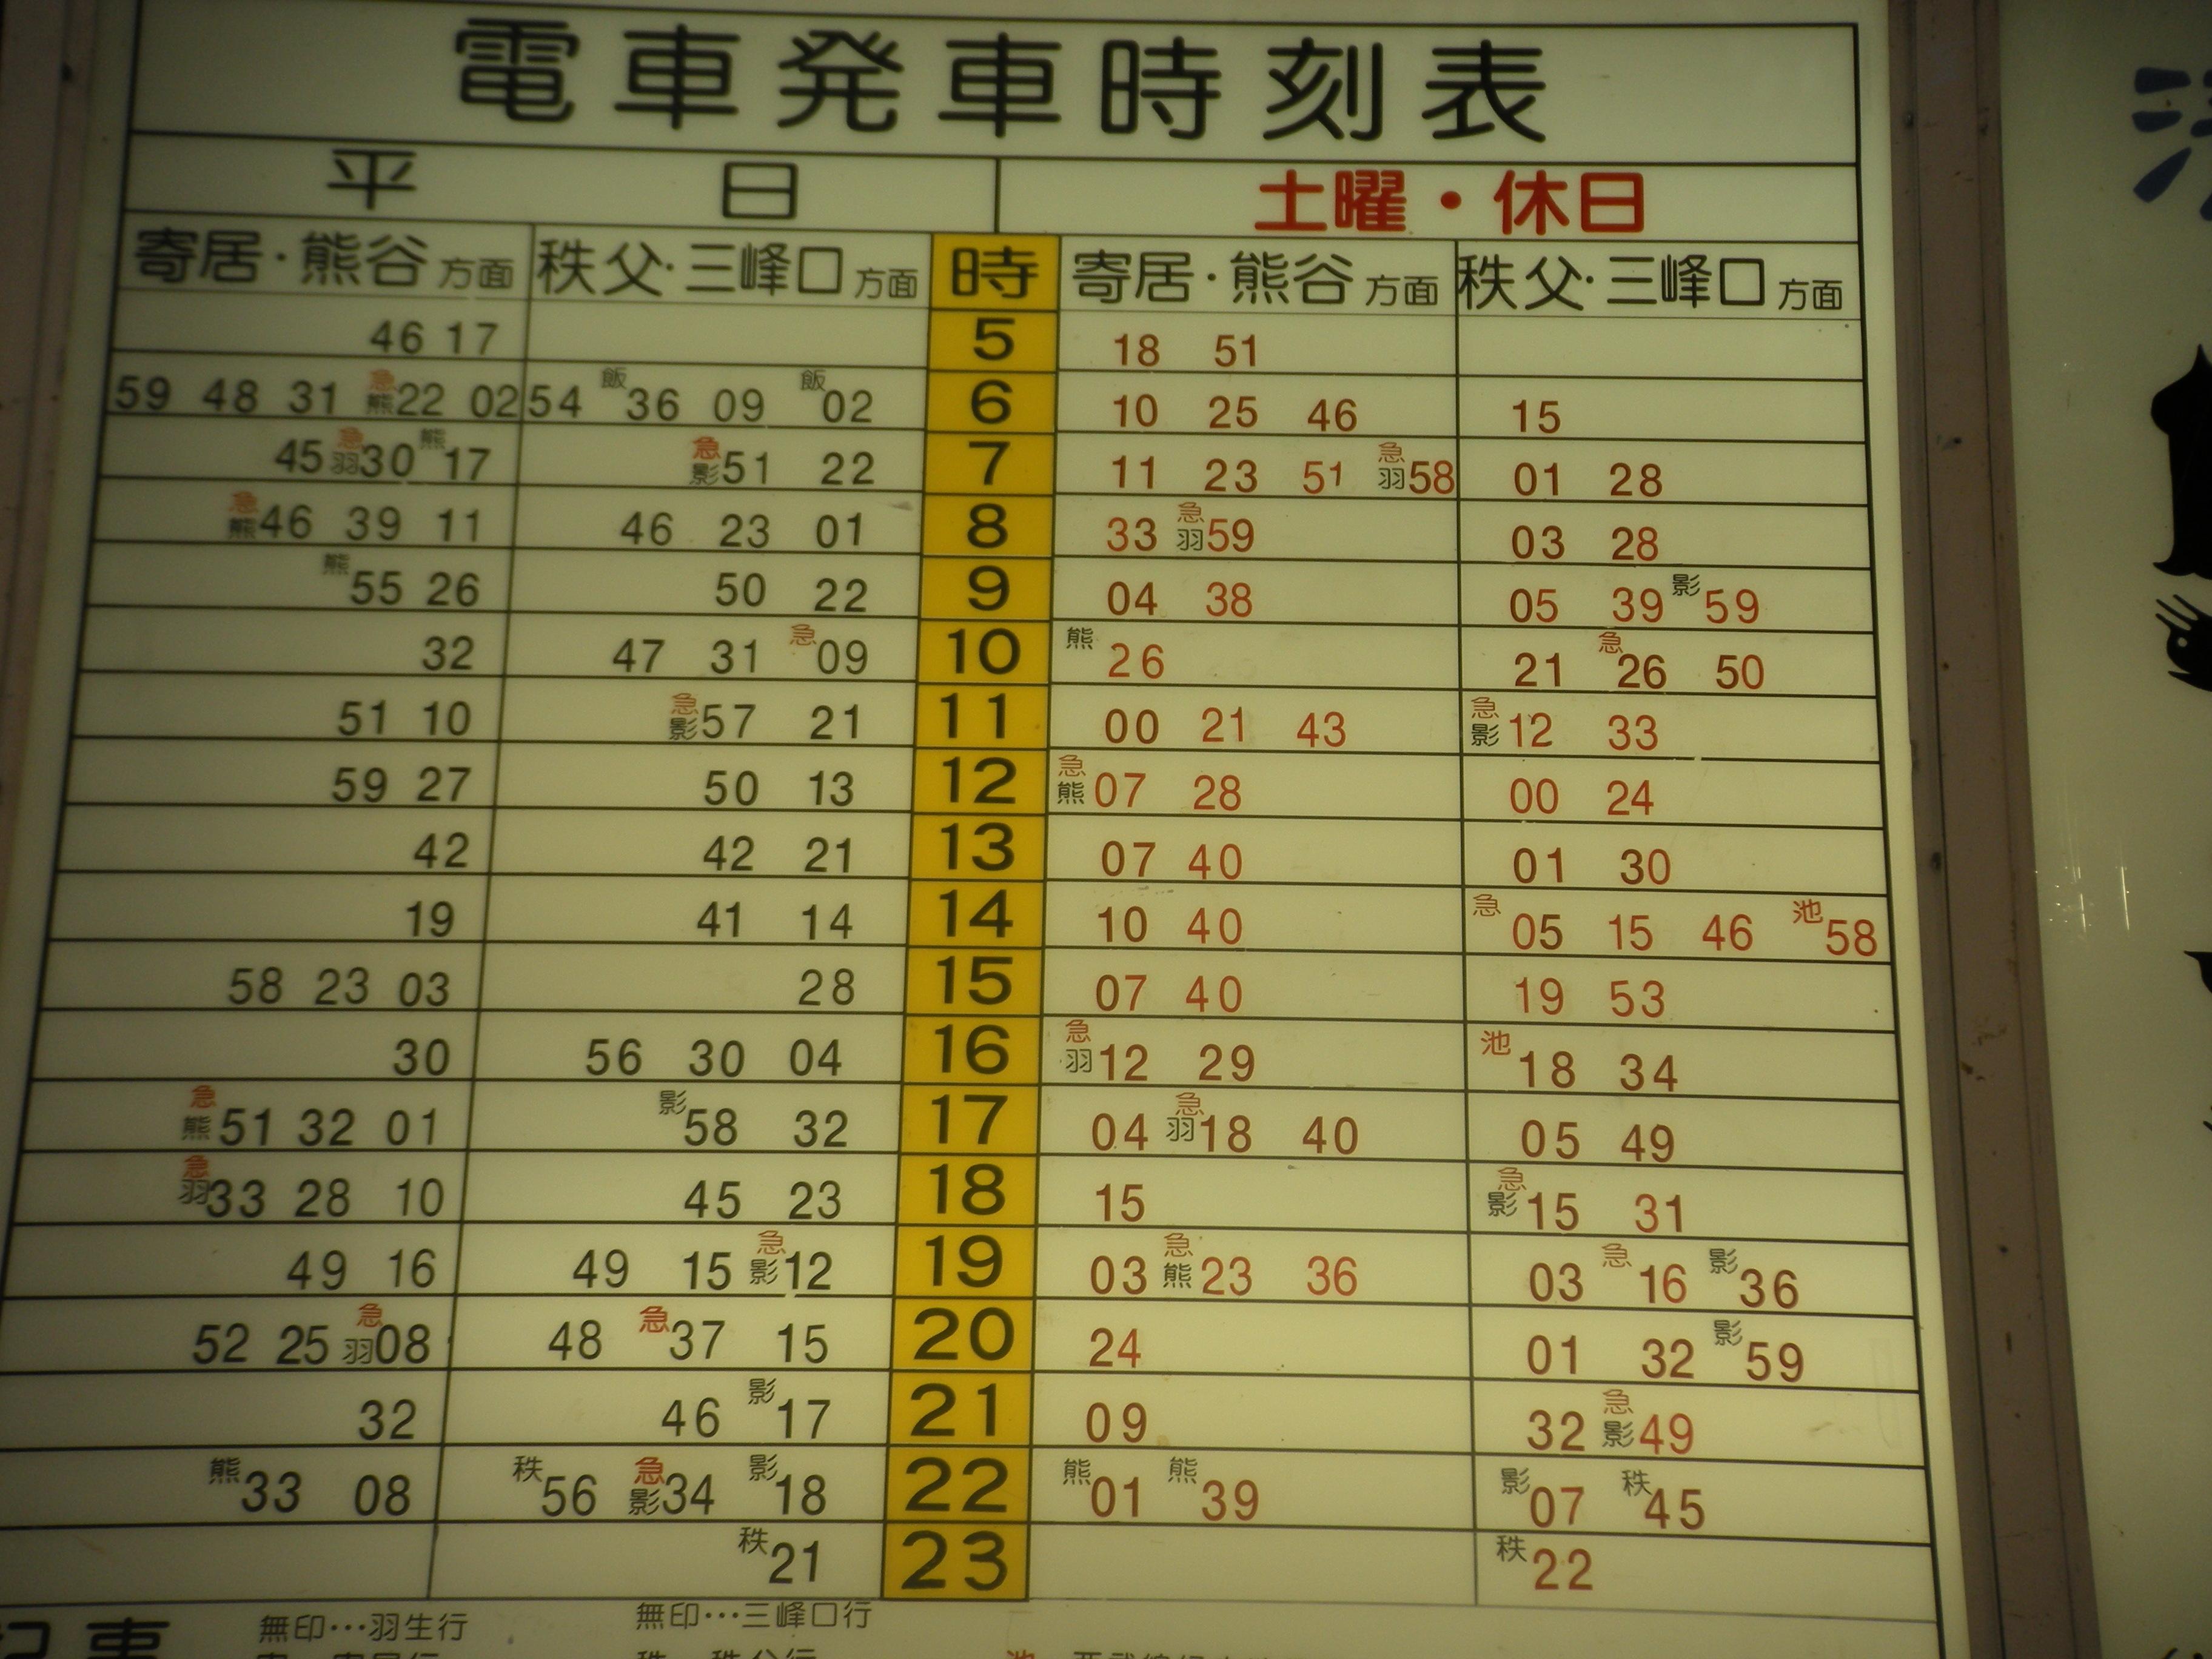 電車発車時刻表
平日 土曜・休日
寄居・熊谷方面 秩父・三峰口方面 時 寄居・熊谷方面 秩父・三峰口方面
46 17 5 18 51
59 48 31 急熊22 02 54 飯36 09 飯02 6 10 25 46 15
45 急羽30 熊17 急影51 22 7 11 23 51 急羽58 01 28
急熊46 39 11 46 23 01 8 33 急羽59 03 28
熊55 26 50 22 9 04 38 05 39 影59
32 47 31 急09 10 熊26 21 急26 50
51 10 急影57 21 11 00 21 43 急影12 33
59 27 50 13 12 急熊07 28 00 24
42 42 21 13 07 40 01 30
19 41 14 14 10 40 急05 15 46 池58
58 23 03 28 15 07 40 19 53
30 56 30 04 16 急羽12 29 池18 34
急熊51 32 01 影58 32 17 04 急羽18 40 05 49
急羽33 28 10 45 23 18 15 急影15 31
49 16 49 15 急影12 19 03 急熊23 36 03 急16 影36
52 25 急羽08 48 急37 15 20 24 01 32 影59
32 46 影17 21 09 32 急影49
熊33 08 秩56 急影34 影18 22 熊01 熊39 影07 秩45
秩21 23 秩22
無印…羽生行 無印…三峰口行